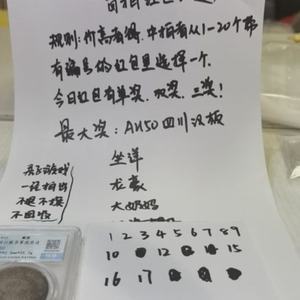 规则:价高者得,中拍者从1-20个带
有编号的红包里选择一个.
今日红包有单奖,双奖,三奖!
最大奖:AU50四川汉板
坐洋
龙毫
大奶妈
卖了游戏
一经拍出
不退不换
不回收
1 2 3 4 5 6 7 8 9
10 12 15
16 17